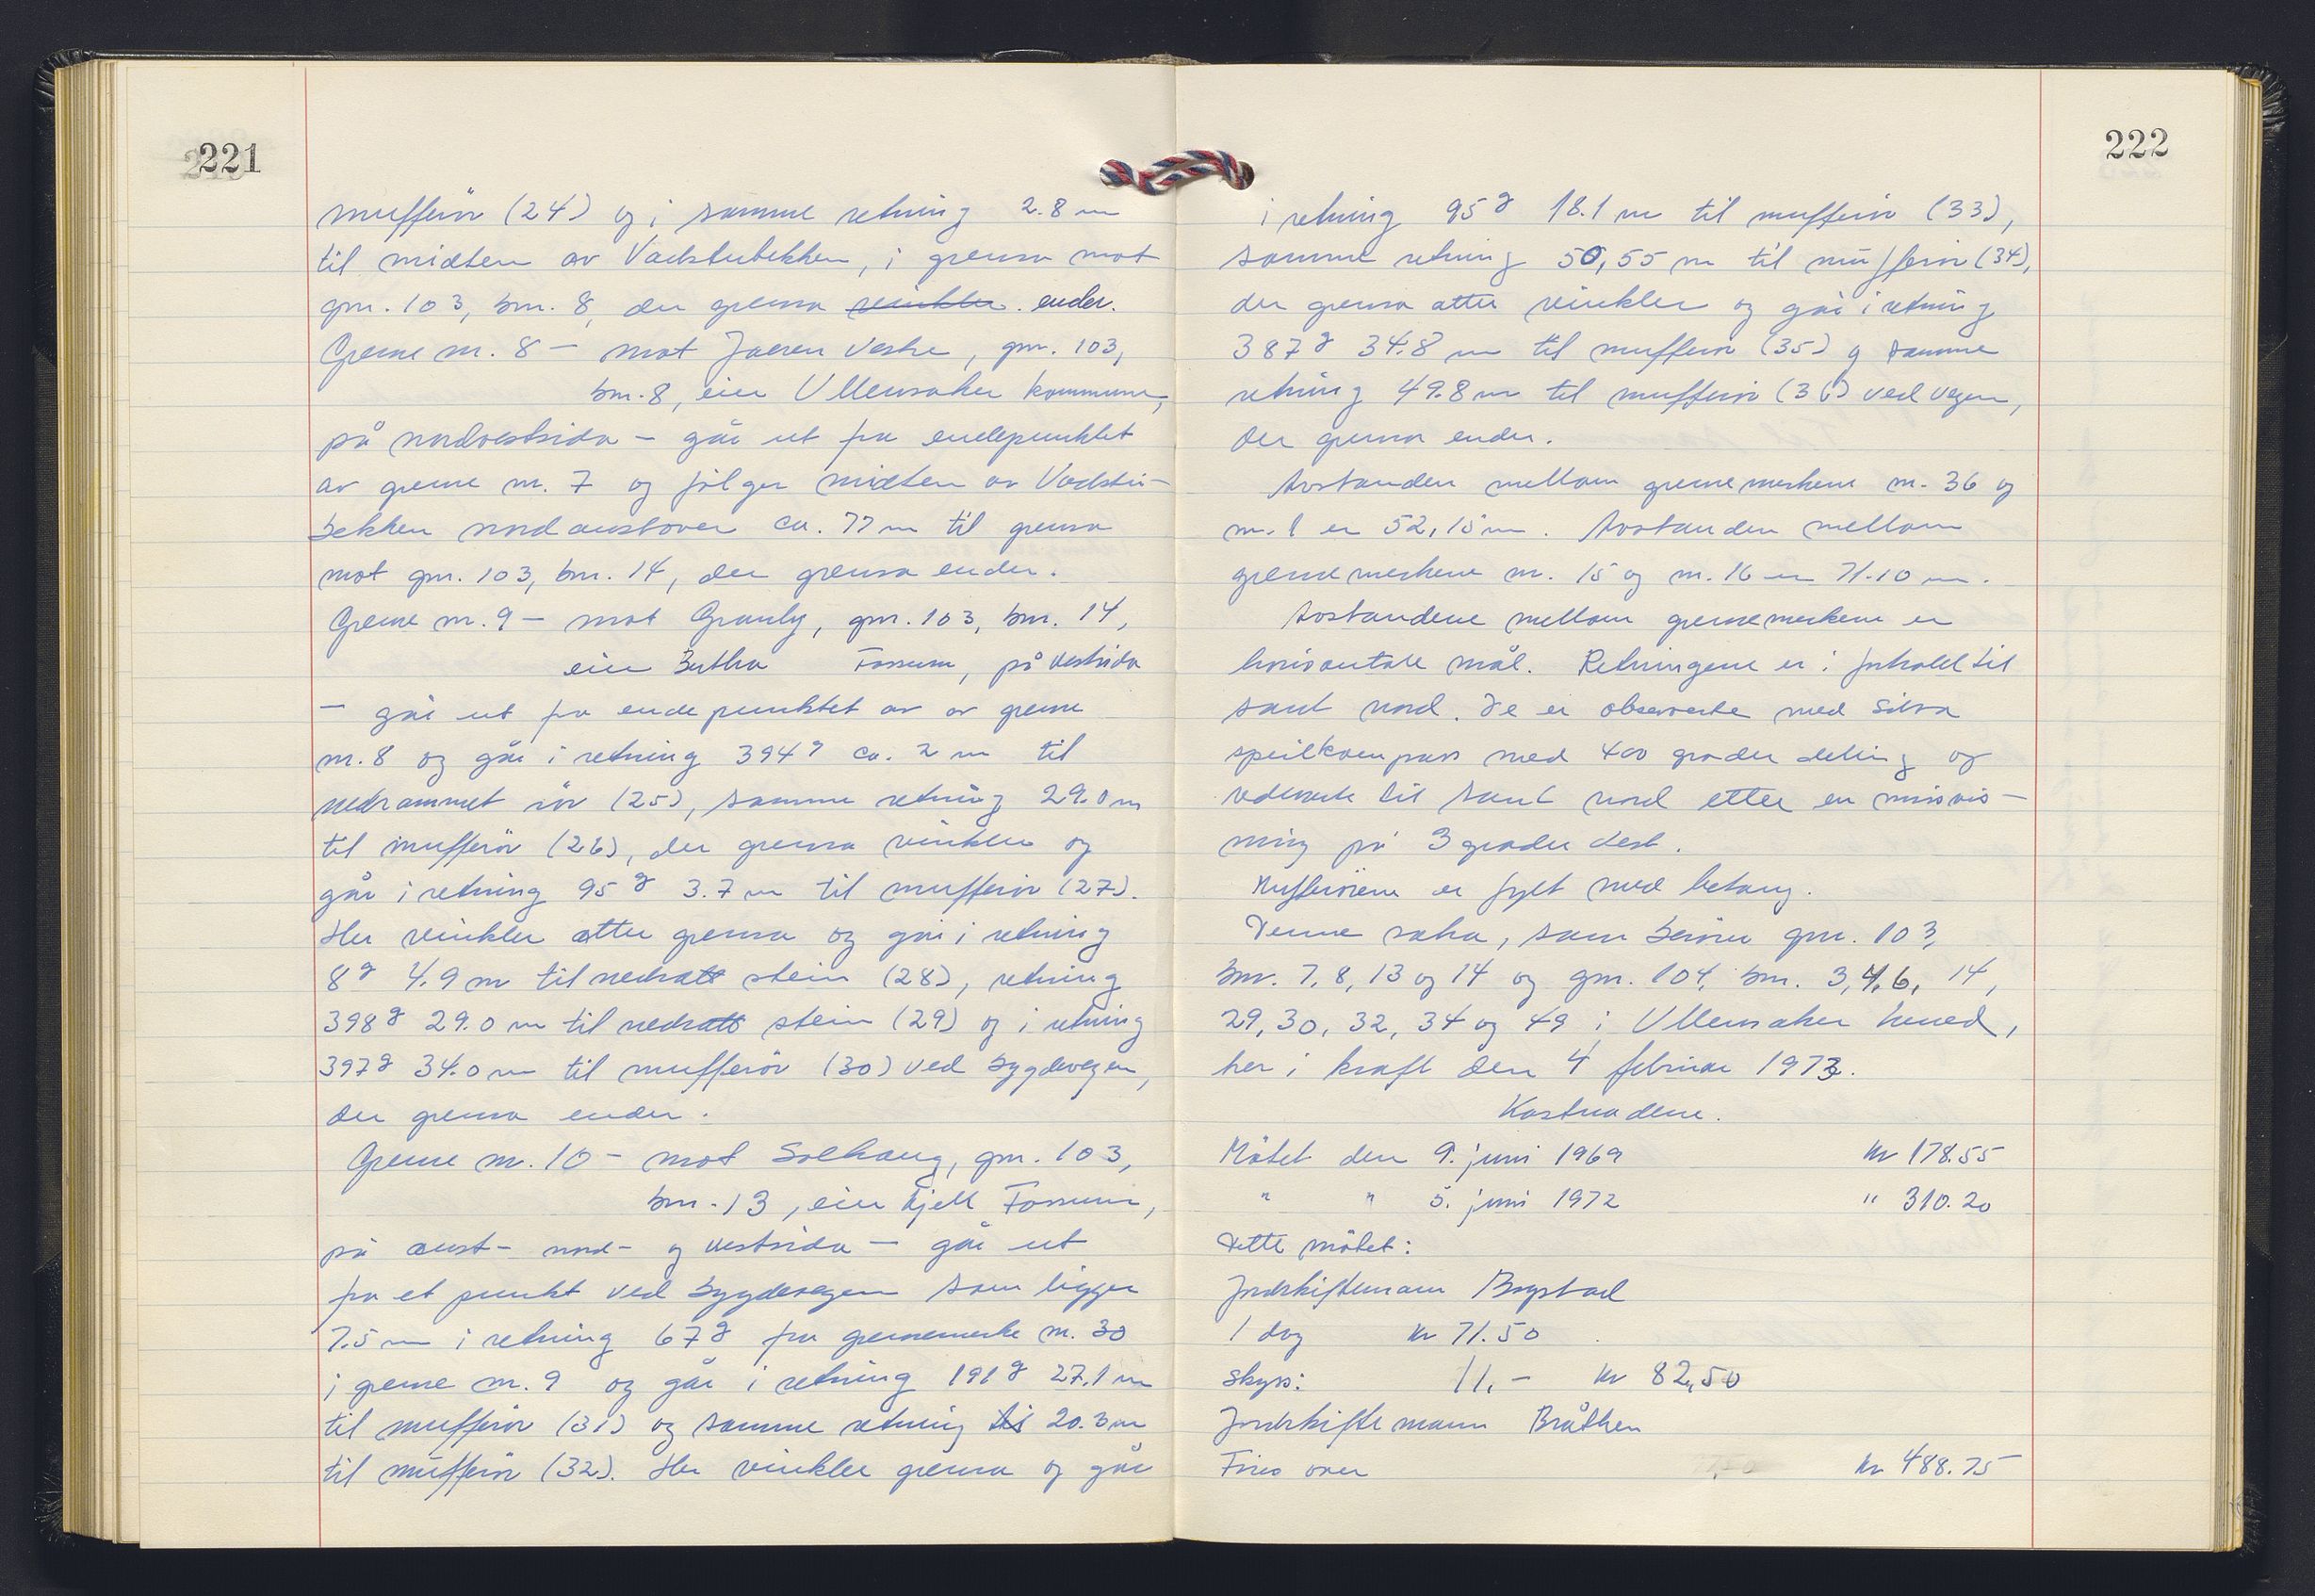 221
mufferör (24) og i samme retning 2.8 m
til midten av Vadstubekken, i grensa mot
gnr. 103, bnr. 8, der grensa vinkler. ender.
Grense nr. 8 – mot Jaeren Vestre, gnr. 103,
bnr. 8, eier Ullensaker kommune,
på nordvestsida – går ut fra endepunktet
av grense nr. 7 og fölger midten av Vadstu-
bekken nordaustover ca. 77 m til grensa
mot gnr. 103, bnr. 14, der grensa ender.
Grense nr. 9 – mot Granly, gnr. 103, bnr. 14,
eier Bertha Fossum, på vestsida
– går ut fra endepunktet av av grense
nr. 8 og går i retning 394g ca. 2 m til
nedrammet rör (25), samme retning 29.0 m
til mufferör (26), der grensa vinkler og
går i retning 95g 3.7 m til mufferör (27).
Her vinkler atter grensa og går i retning
8g 4.9 m til nedsatt stein (28), retning
398g 29.0 m til nedsatt stein (29) og i retning
397g 34.0 m til mufferör (30) ved bygdevegen,
der grensa ender.
Grense nr. 10 – mot Solhaug, gnr. 103,
bnr. 13, eier Kjell Fossum,
på aust- nord- og vestsida – går ut
fra et punkt ved bygdevegen som ligger
7.5 m i retning 67g fra grensemerke nr. 30
i grense nr. 9 og går i retning 191g 27.1 m
til mufferör (31) og samme retning til 20.3 m
til mufferör (32). Her vinkler grensa og går
222
i retning 95g 18.1 m til mufferör (33),
samme retning 50,55 m til mufferör (34),
der grensa atter vinkler og går i retning
387g 34.8 m til mufferör (35) og samme
retning 49.8 m til mufferör (36) ved vegen,
der grensa ender.
Avstanden mellom grensemerkene nr. 36 og
nr. 1 er 52,15 m. Avstanden mellom
grensemerkene nr. 15 og nr. 16 er 71.10 m.
Avstandene mellom grensemerkene er
horisontale mål. Retningene er i forhold til
sant nord. De er observerte med Silva
speilkompass med 400 grader deling og
rederverte til sant nord etter en misvis-
ning på 3 grader vest.
Mufferörene er fylt med betong.
Denne saka, som berörer gnr. 103,
bnr. 7, 8, 13 og 14 og gnr. 104, bnr. 3, 4, 6, 14,
29, 30, 32, 34 og 49 i Ullensaker herred,
her i kraft den 4 februar 1973.
Kostnadene.
Mötet den 9. juni 1969 kr 178.55
" " 5. juni 1972 " 310.20
Dette mötet:
Jordskiftemann Bogstad
1 dag kr 71.50
Skyss: 11.– kr 82,50
Jordskiftemann Bråthen
Föres over kr 488.75